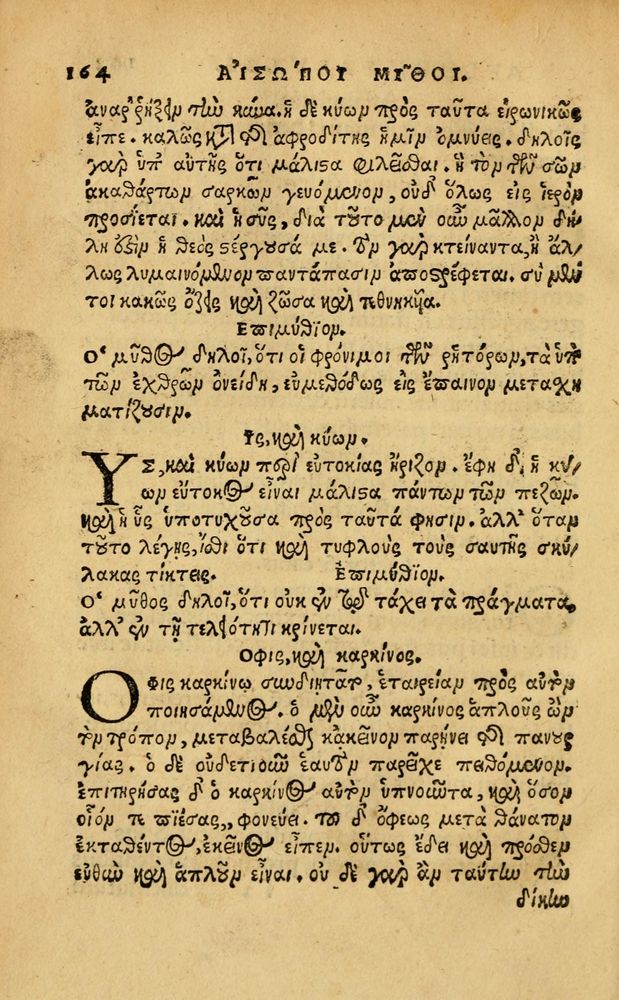 164 ΑἸΣΩ´ΠΟΥ ΜΥ͂ΘΟΙ.
ἀναῤῥήξειν τὴν κύνα. ἡ δὲ κύων πρὸς ταῦτα εἰρωνικῶς
εἶπε. καλῶς κατὰ τῆς ἀφροδίτης ἡμῖν ὀμνύεις. δηλοῖς
γὰρ ὑπ' αὐτῆς ὅτι μάλιστα φιλεῖσθαι. ἢ τὸν τῶν σῶν
ἀκαθάρτων σαρκῶν γευόμενον, οὐδ' ὅλως εἰς ἱερὸν
προσίεται. καὶ ἡ σῦς, διὰ τοῦτο μὲν οὖν μᾶλλον δή-
λη ἐστὶν ἡ θεὸς στέργουσά με. τὸν γὰρ κτείναντα, ἢ ἄλ-
λως λυμαινόμενον παντάπασιν ἀποστρέφεται. σὺ μέν
τοι κακῶς ὄζεις καὶ ζῶσα καὶ τεθνηκῦα.
Ἐπιμύθιον.
Ὁ μῦθος δηλοῖ, ὅτι οἱ φρόνιμοι τῶν ῥητόρων, τὰ ὑπὸ
τῶν ἐχθρῶν ὀνείδη, εὐμεθόδως εἰς ἔπαινον μετασχη
ματίζουσιν.
Ὗς, καὶ κύων.
ΥΣ, καὶ κύων περὶ εὐτοκίας ἤριζον. ἔφη δ', ἡ κύ-
ων εὔτοκος εἶναι μάλιστα πάντων τῶν πεζῶν.
καὶ ἡ ὗς ὑποτυχοῦσα πρὸς ταῦτά φησιν. ἀλλ' ὅταν
τοῦτο λέγῃς, ἴσθι ὅτι καὶ τυφλοὺς τοὺς σαυτῆς σκύ-
λακας τίκτεις. Ἐπιμύθιον.
Ὁ μῦθος δηλοῖ, ὅτι οὐκ ἐν τῷ τάχει τὰ πράγματα,
ἀλλ' ἐν τῇ τελειότητι κρίνεται.
Ὄφις, καὶ καρκίνος.
ΟΦις καρκίνῳ συνδιητᾶτο, ἑταιρείαν πρὸς αὐτὸν
ποιησάμενος. ὁ μὲν οὖν καρκίνος ἁπλοῦς ὢν
τὸν τρόπον, μεταβαλέσθαι κἀκεῖνον παρῄνει τῆς πανουρ
γίας. ὁ δὲ οὐδετιοῦν ἑαυτὸν παρεῖχε πειθόμενον.
ἐπιτηρήσας δ' ὁ καρκίνος αὐτὸν ὑπνοῦντα, καὶ ὅσον
οἷόν τε πιέσας,, φονεύει. τοῦ δ' ὄφεως μετὰ θάνατον
ἐκταθέντος, ἐκεῖνος εἶπεν. οὕτως ἔδει καὶ πρόσθεν
εὐθὺν καὶ ἁπλοῦν εἶναι. οὐ δὲ γὰρ ἂν ταύτην τὴν
δίκην